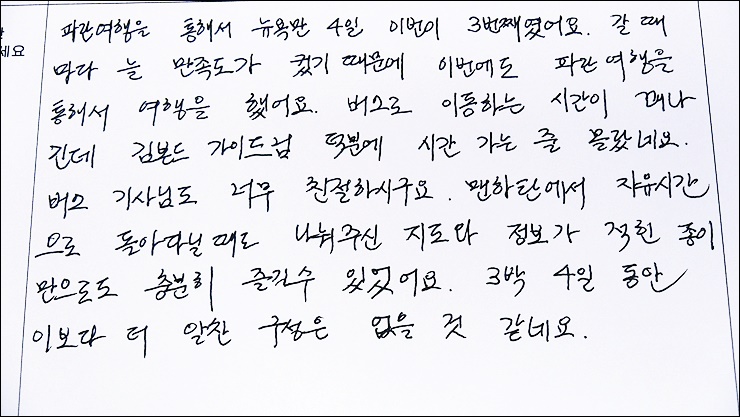 세요
파란여행을 통해서 뉴욕만 4일 이번이 3번째였어요. 갈 때
마다 늘 만족도가 컸기 때문에 이번에도 파란여행을
통해서 여행을 했어요. 버스로 이동하는 시간이 꽤나
긴데 김본드 가이드님 덕분에 시간 가는 줄 몰랐네요.
버스 기사님도 너무 친절하시구요. 맨하탄에서 자유시간
으로 돌아다닐 때도 나눠주신 지도와 정보가 적힌 종이
만으로도 충분히 즐길수 있었어요. 3박 4일 동안
이보다 더 알찬 구성은 없을 것 같네요.